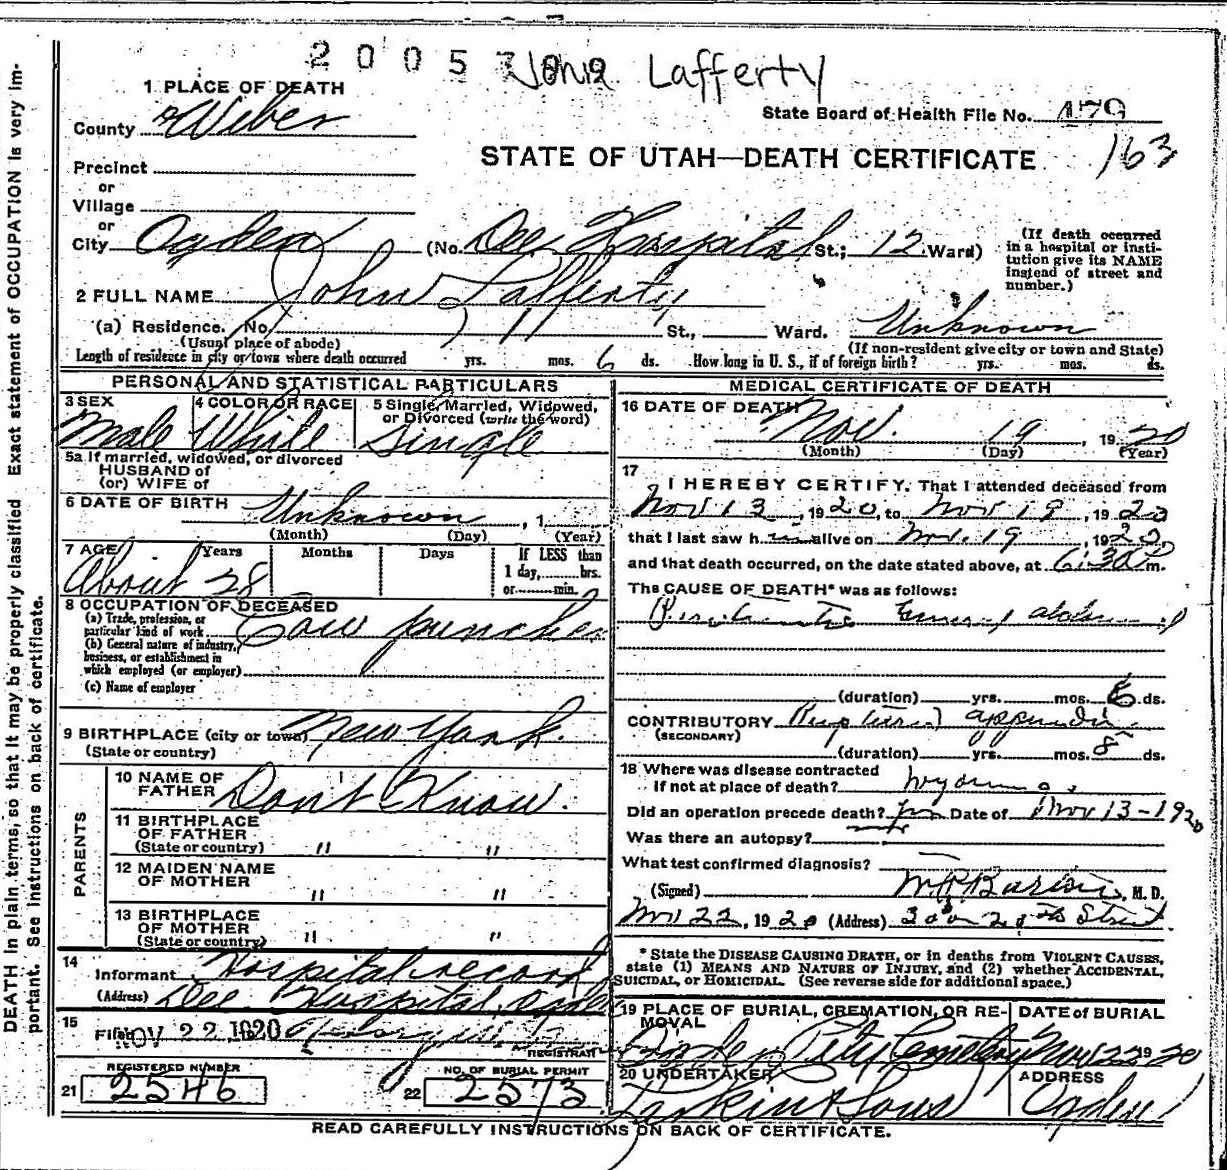 2 0 0 5
Lafferty
1 PLACE OF DEATH
County Weber
State Board of Health File No. 479
STATE OF UTAH—DEATH CERTIFICATE 163
Precinct
or
Village
or
City Ogden (No. Dee Hospital St.; 12 Ward)
(If death occurred
in a hospital or insti-
tution give its NAME
instead of street and
number.)
2 FULL NAME John Lafferty
(a) Residence. No. St., Ward. Unknown
(Usual place of abode) (If non-resident give city or town and State)
Length of residence in city or town where death occurred yrs. mos. 6 ds. How long in U. S., if of foreign birth? yrs. mos. ds.
PERSONAL AND STATISTICAL PARTICULARS
3 SEX 4 COLOR OR RACE 5 Single, Married, Widowed,
or Divorced (write the word)
Male White Single
5a If married, widowed, or divorced
HUSBAND of
(or) WIFE of
6 DATE OF BIRTH Unknown , 1
(Month) (Day) (Year)
7 AGE Years Months Days If LESS than
1 day, hrs.
or min.
About 28
8 OCCUPATION OF DECEASED
(a) Trade, profession, or
particular kind of work Cow puncher
(b) General nature of industry,
business, or establishment in
which employed (or employer)
(c) Name of employer
9 BIRTHPLACE (city or town) New York.
(State or country)
PARENTS
10 NAME OF
FATHER Dont Know.
11 BIRTHPLACE
OF FATHER
(State or country) " "
12 MAIDEN NAME
OF MOTHER " "
13 BIRTHPLACE
OF MOTHER
(State or country) " "
14
Informant Hospital record
(Address) Dee Hospital, Ogden
15
Filed NOV 22 1920
REGISTRAR
REGISTERED NUMBER NO. OF BURIAL PERMIT
21 2546 22 2573
MEDICAL CERTIFICATE OF DEATH
16 DATE OF DEATH
Nov. 19 , 1920
(Month) (Day) (Year)
17
I HEREBY CERTIFY, That I attended deceased from
Nov 13, 1920, to Nov 19, 1920
that I last saw h im alive on Nov. 19, 1920,
and that death occurred, on the date stated above, at 6:30 P m.
The CAUSE OF DEATH* was as follows:
Peritonitis General abdominal
(duration) yrs. mos. 6 ds.
CONTRIBUTORY Ruptured appendix
(SECONDARY)
(duration) yrs. mos. 8 ds.
18 Where was disease contracted
if not at place of death? Wyoming.
Did an operation precede death? yes Date of Nov 13-1920
Was there an autopsy?
What test confirmed diagnosis?
(Signed) M. D.
Nov 22, 1920 (Address) Street
* State the DISEASE CAUSING DEATH, or in deaths from VIOLENT CAUSES,
state (1) MEANS AND NATURE OF INJURY, and (2) whether ACCIDENTAL,
SUICIDAL, or HOMICIDAL. (See reverse side for additional space.)
19 PLACE OF BURIAL, CREMATION, OR RE-
MOVAL
DATE of BURIAL
Ogden City Cemetery Nov 22 1920
20 UNDERTAKER ADDRESS
Larkin & Sons Ogden
READ CAREFULLY INSTRUCTIONS ON BACK OF CERTIFICATE.
DEATH in plain terms, so that it may be properly classified Exact statement of OCCUPATION is very im-
portant. See instructions on back of certificate.